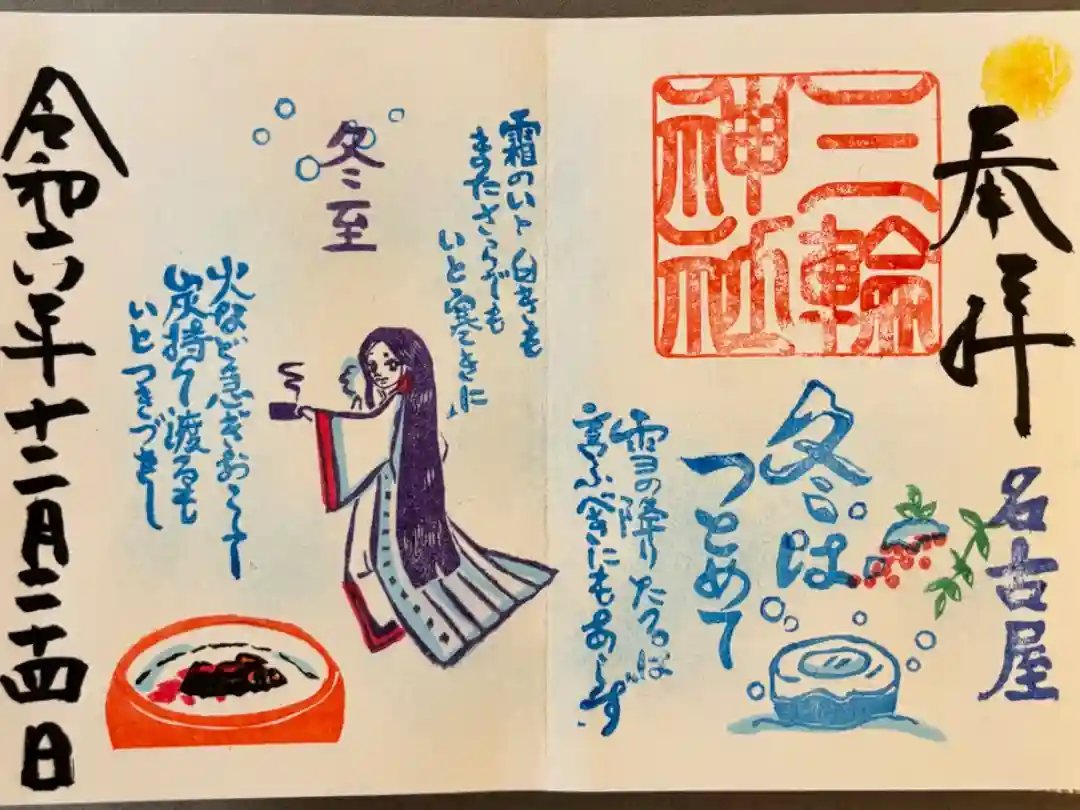 奉拝
三輪
神社
名古屋
冬は
つとめて
雪の降りたるは
言ふべきにもあらず
霜のいと白きも
またさらでも
いと寒きに
冬至
火など急ぎおこして
炭持て渡るも
いとつきづきし
令和六年十二月二十四日